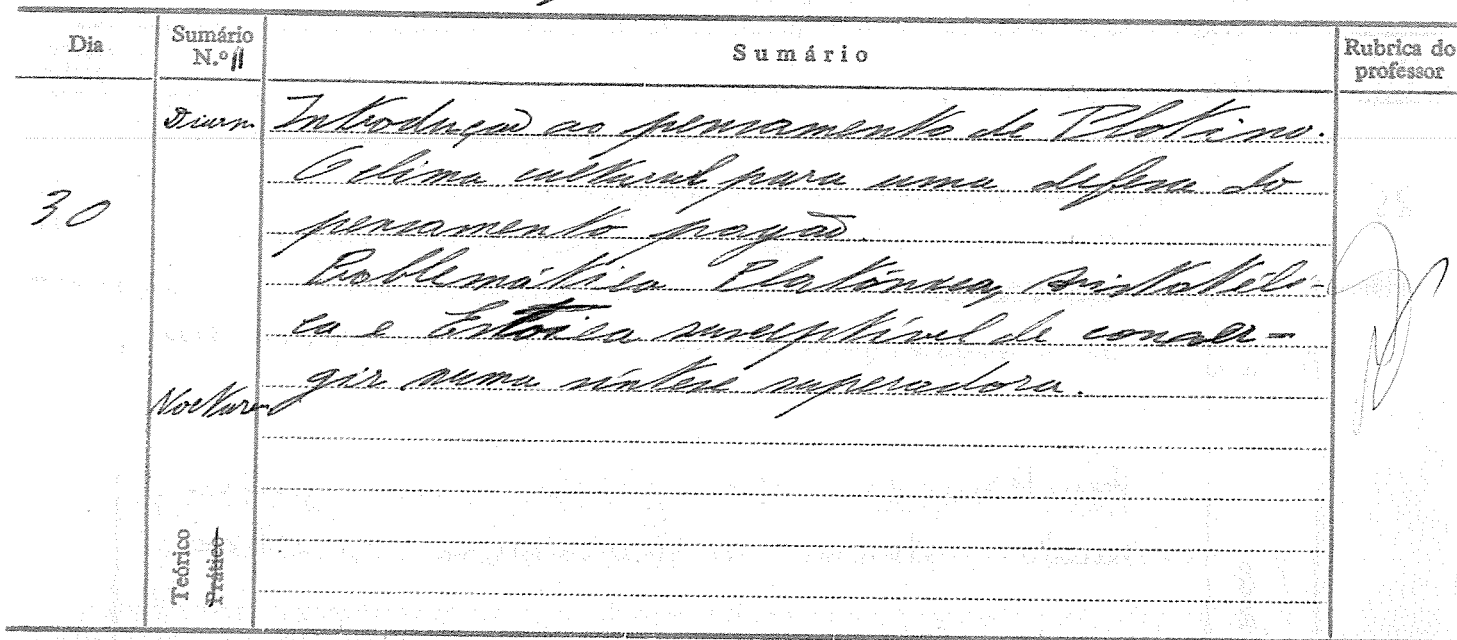 Dia
Sumário N.º 11
Sumário
Rubrica do professor
30
Diurn
Introdução ao pensamento de Plotino.
O clima cultural para uma defesa do
pensamento pagão.
Problemática Platónica, Aristotéli-
ca e Estóica susceptível de conver-
gir numa síntese superadora.
Nocturn
Teórico
Prático